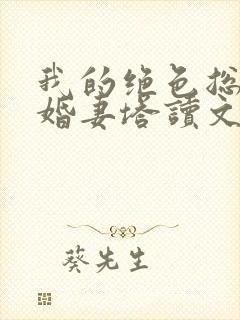 我的绝色总
婚妻塔读文
葵先生